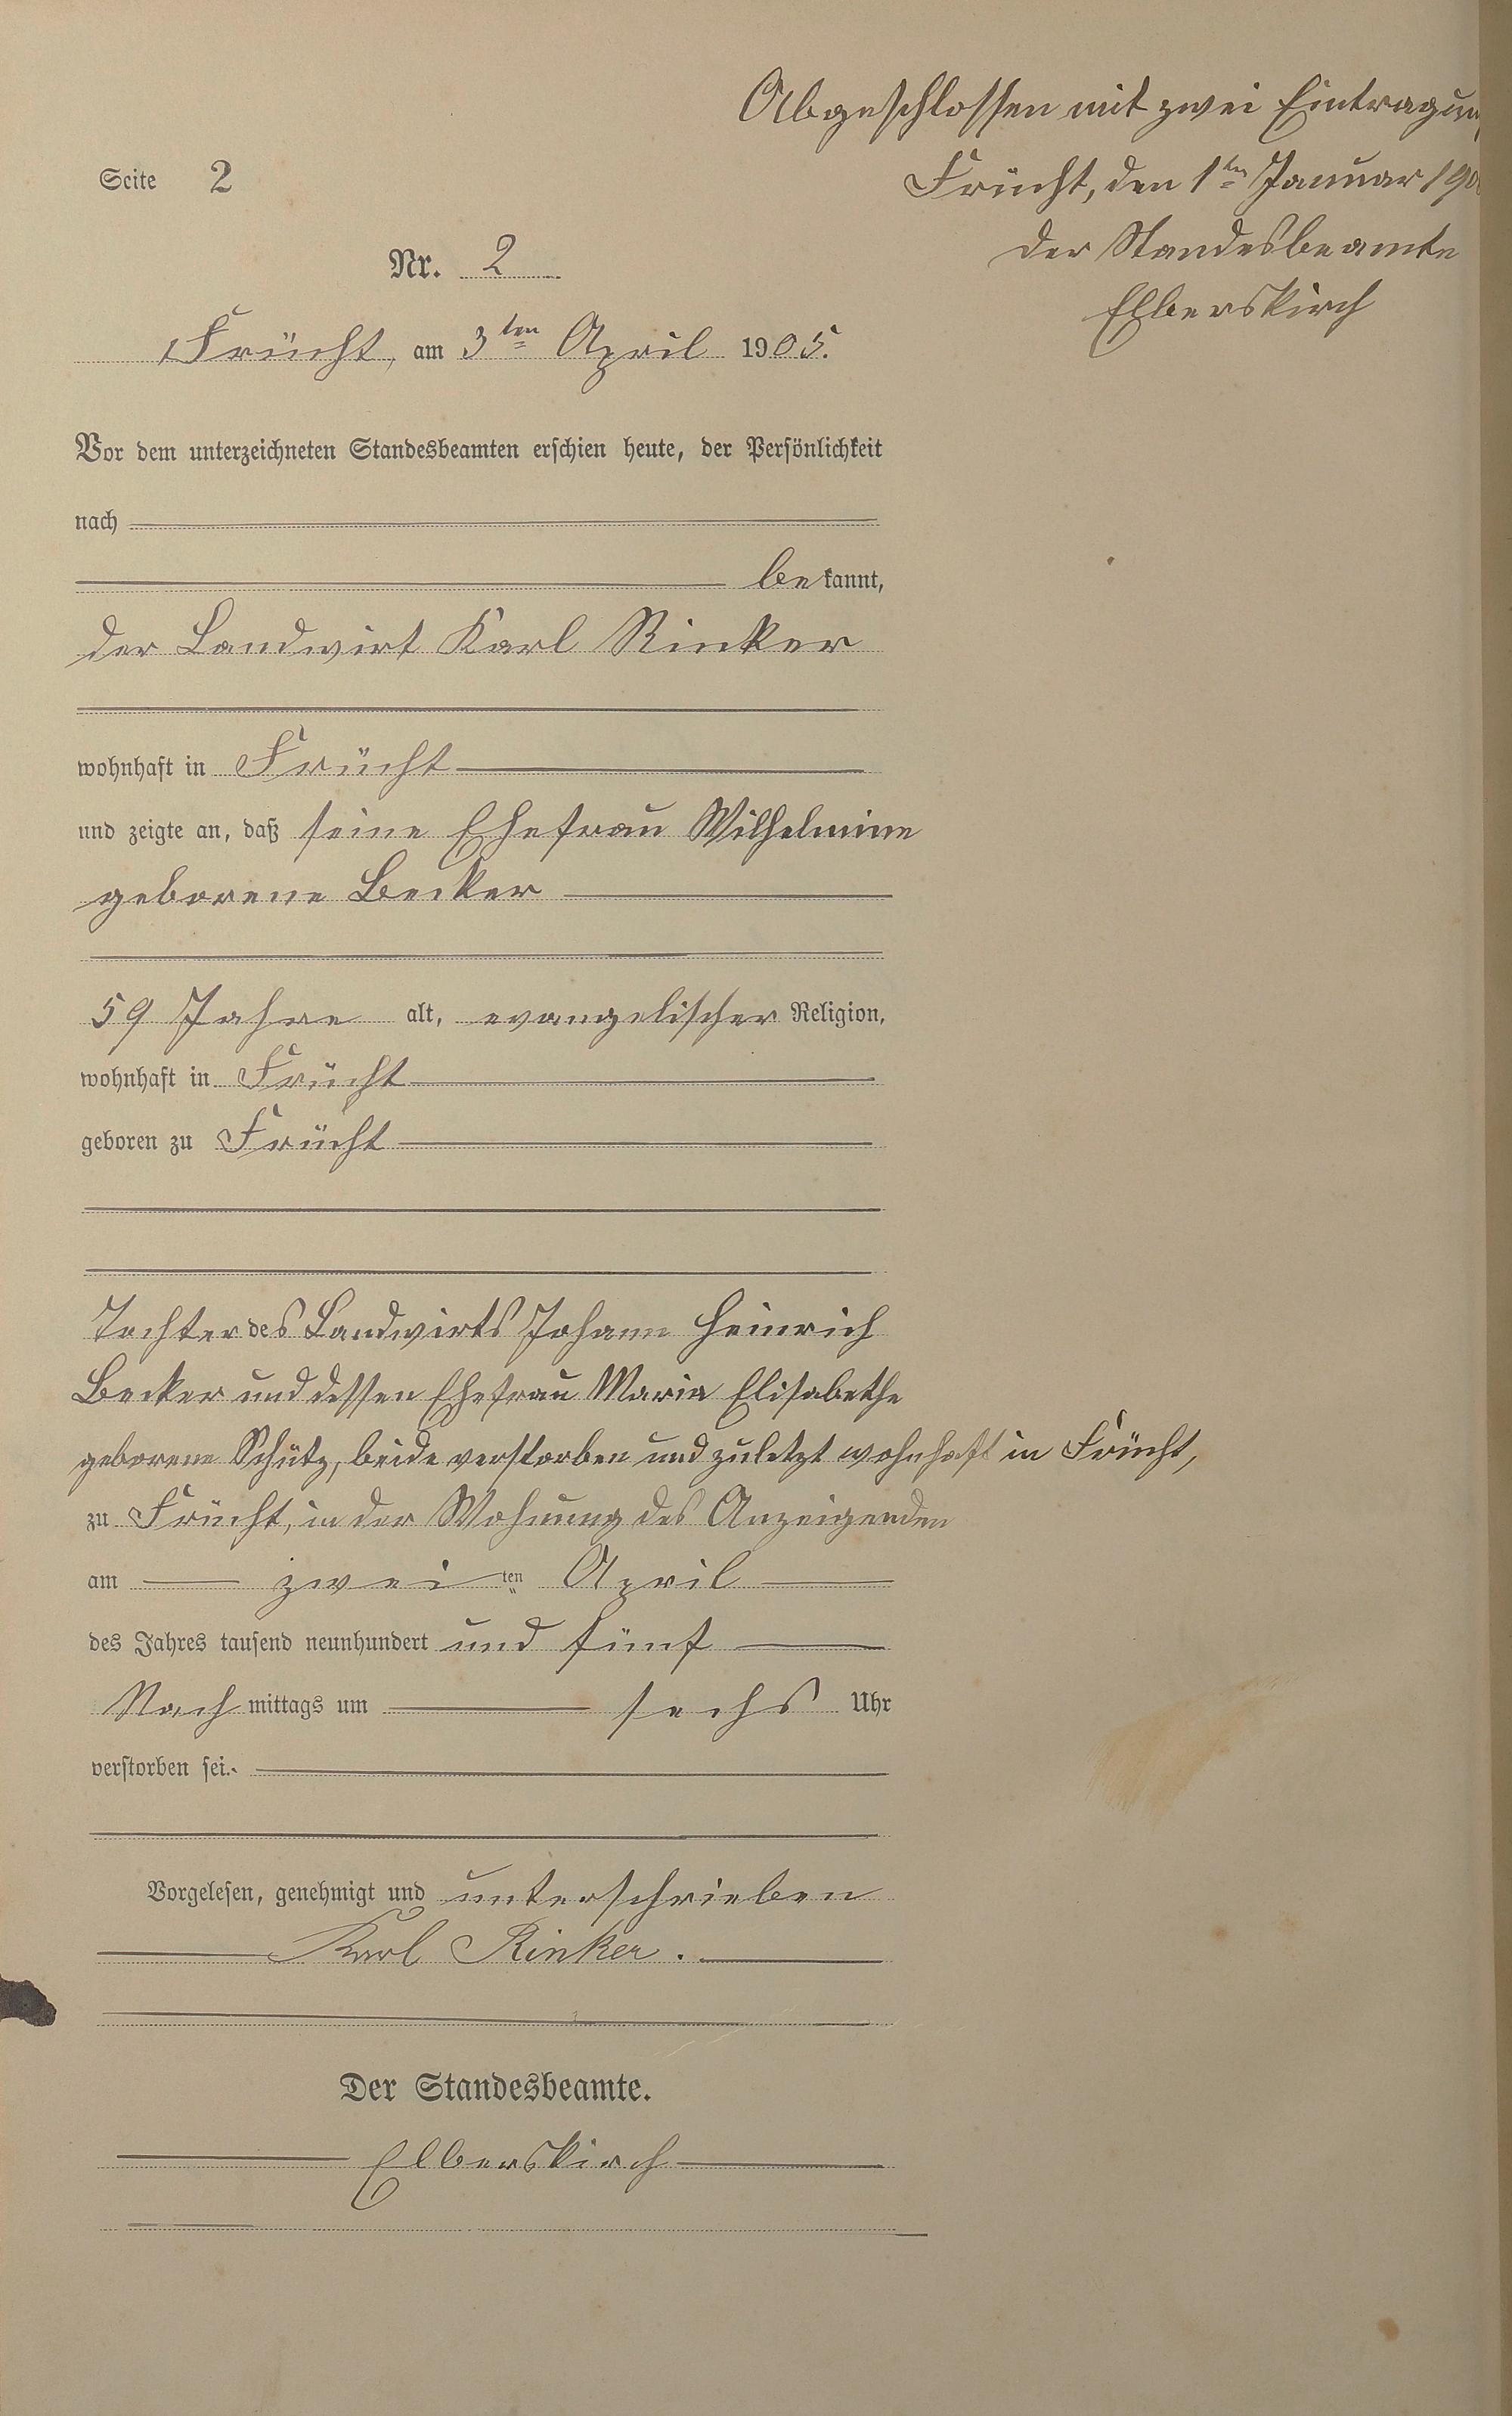 Abgeschlossen mit zwei Eintragun
Frücht, den 1ten Januar 190
Der Standesbeamte
Elberskirch
Seite 2
Nr. 2
Frücht, am 3ten April 1905.
Vor dem unterzeichneten Standesbeamten erschien heute, der Persönlichkeit
nach
bekannt,
der Landwirt Karl Rinker
wohnhaft in Frücht
und zeigte an, daß seine Ehefrau Wilhelmine
geborene Becker
59 Jahre alt, evangelischer Religion,
wohnhaft in Frücht
geboren zu Frücht
Tochter des Landwirts Johann Heinrich
Becker und dessen Ehefrau Maria Elisabethe
geborene Schütz, beide verstorben und zuletzt wohnhaft in Frücht,
zu Frücht, in der Wohnung des Anzeigenden
am zweiten April
des Jahres tausend neunhundert und fünf
Nachmittags um sechs Uhr
verstorben sei.
Vorgelesen, genehmigt und unterschrieben
Karl Rinker.
Der Standesbeamte.
Elberskirch